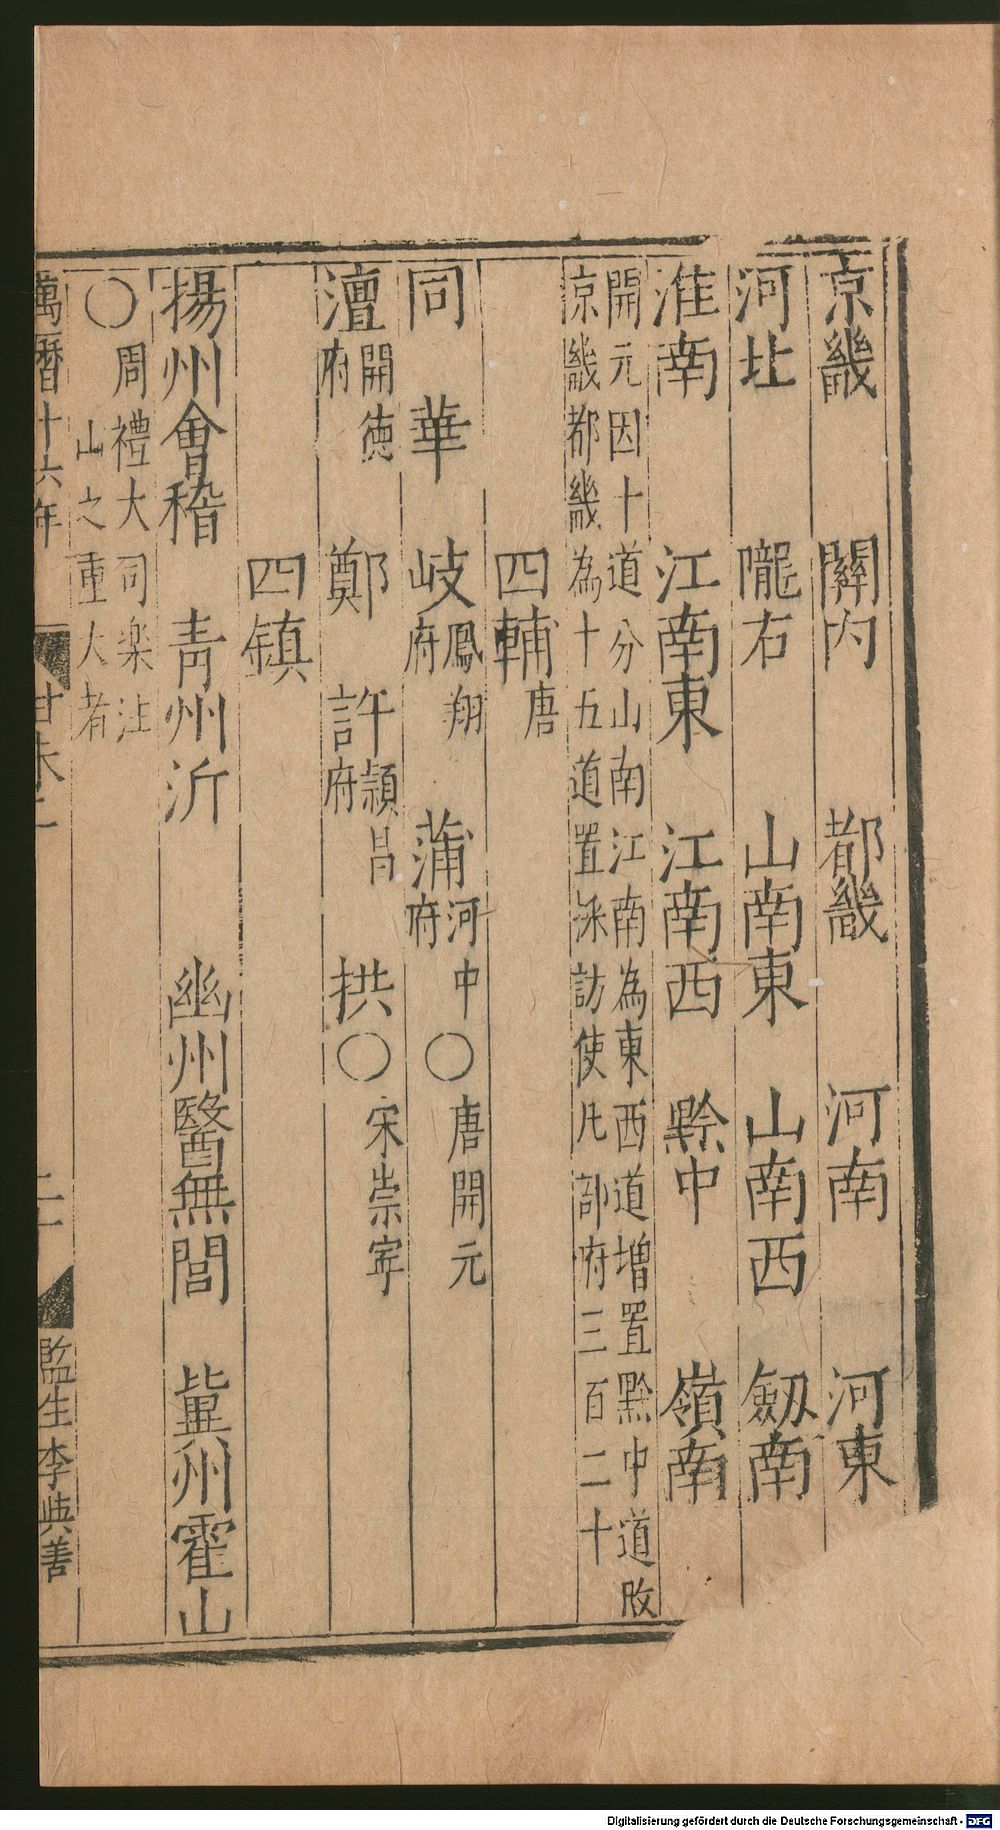 京畿　關內　都畿　河南　河東
河北　隴右　山南東　山南西　劔南
淮南　江南東　江南西　黔中　嶺南
開元因十道分山南江南為東西道增置黔中道改
京畿都畿為十五道置採訪使凡郡府三百二十
四輔唐
同　華　岐鳳翔府　蒲河中府○唐開元
澶開德府　鄭　許潁昌府　拱○宋崇寧
四鎮
揚州會稽　青州沂　幽州醫無閭　冀州霍山
○周禮大司樂注
山之重大者
萬曆十六年　監生李典善
Digitalisierung gefördert durch die Deutsche Forschungsgemeinschaft - DFG